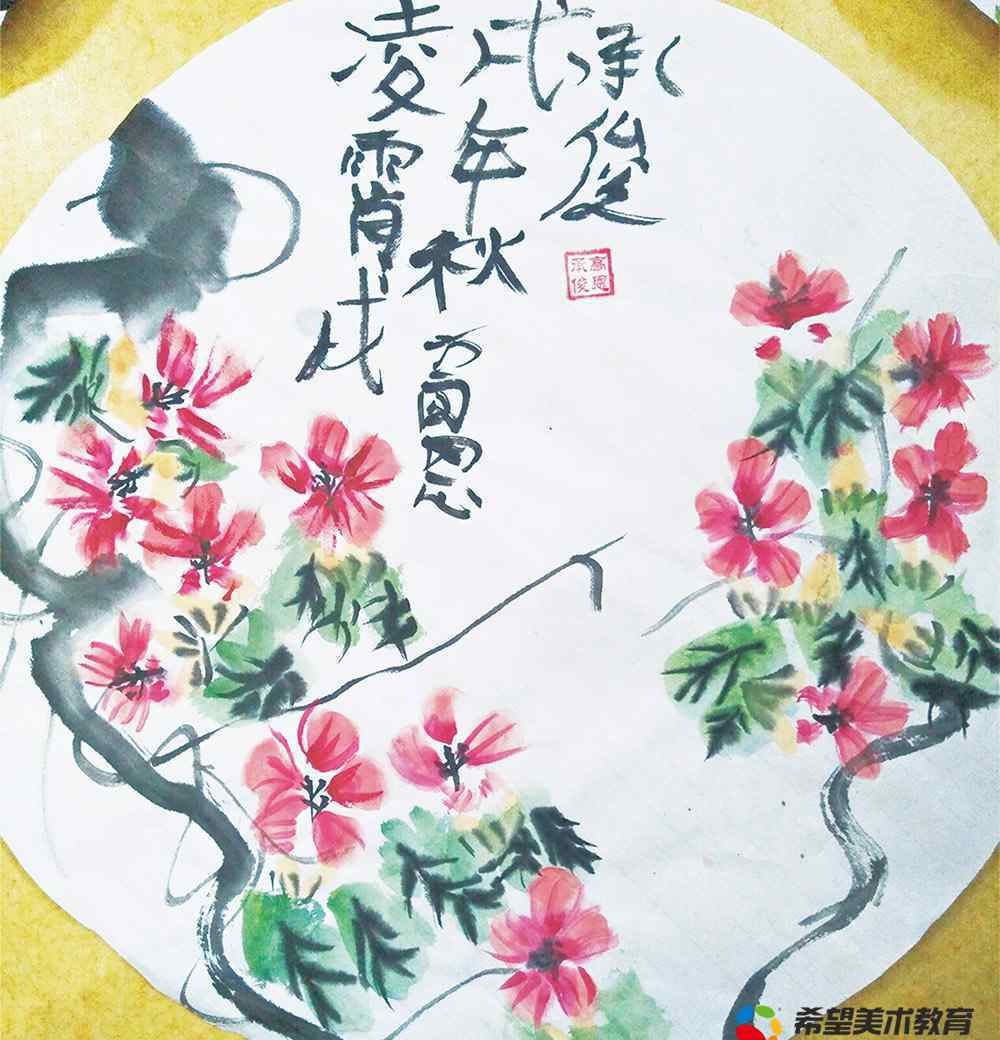 凌霄戊
戌年秋高恩
承俊
高恩
承俊
希望美术教育